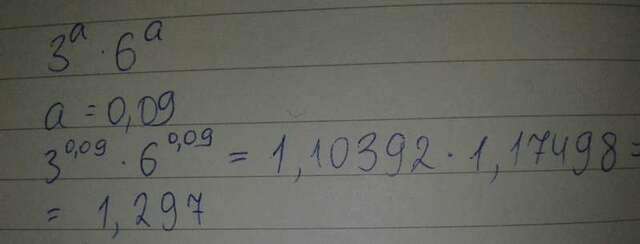 3^a · 6^a
a = 0,09
3^0,09 · 6^0,09 = 1,10392 · 1,17498 =
= 1,297